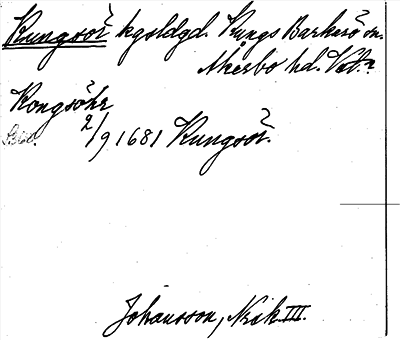 Kungsör kgsldgd. Kungs Barkarö sn.
Åkerbo hd. Vstm.
Kongsöhr
2/9 1681 Kungsör.
Johansson, Noik III.